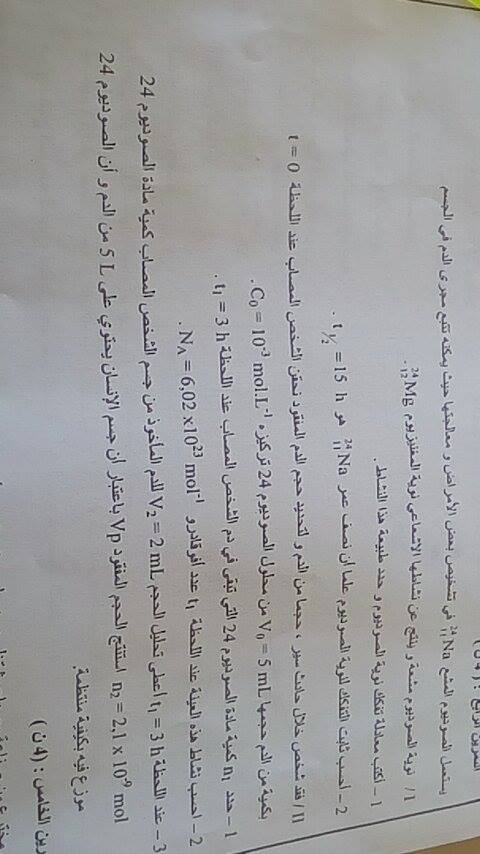 التمرين الرابع : (4ن)
يستعمل الصوديوم المشع ²⁴₁₁Na في تشخيص بعض الأمراض و معالجتها حيث يمكنه تتبع مجرى الدم في الجسم
1/ نوية الصوديوم مشعة و ينتج عن نشاطها الإشعاعي نوية المغنيزيوم ²⁴₁₂Mg .
1 – أكتب معادلة تفتت نوية الصوديوم و حدد طبيعة هذا النشاط.
2 – أحسب ثابت التفتت لنوية الصوديوم علما أن نصف عمر ²⁴₁₁Na هو t½ = 15 h .
II / فقد شخص خلال حادث سير ، حجما من الدم و لتحديد حجم الدم المفقود نحقن الشخص المصاب عند اللحظة t = 0
بكمية من الدم حجمها V₀ = 5 mL من محلول الصوديوم 24 تركيزه C₀ = 10⁻³ mol.L⁻¹ .
1 – حدد n₁ كمية مادة الصوديوم 24 التي تبقى في دم الشخص المصاب عند اللحظة t₁ = 3 h .
2 – احسب نشاط هذه العينة عند اللحظة t₁ عدد أفوقادرو N_A = 6,02 x10²³ mol⁻¹ .
3 – عند اللحظة t₁ = 3 h أعطى تحليل الحجم V₂ = 2 mL للدم المأخوذ من جسم الشخص المصاب كمية مادة الصوديوم 24
n₂ = 2,1 x 10⁻⁹ mol استنتج الحجم المفقود Vp باعتبار أن جسم الإنسان يحتوي على 5 L من الدم و أن الصوديوم 24
موزع فيه بكيفية منتظمة.
رين الخامس : (4ن)